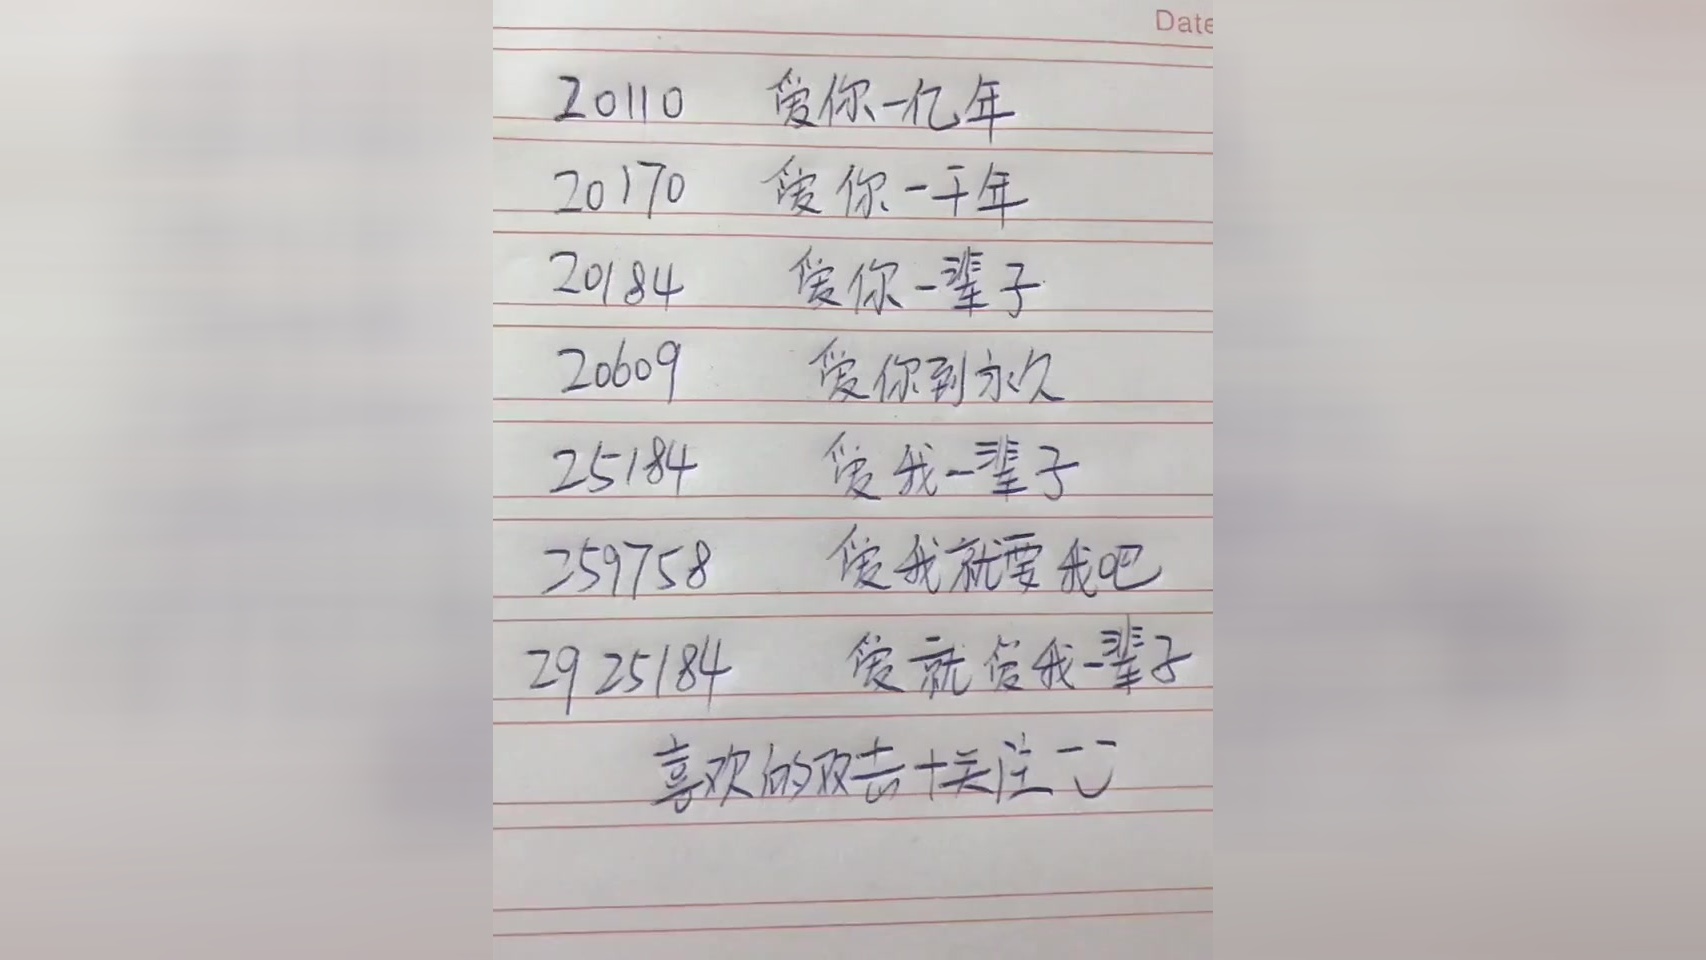 Date
20110 爱你一亿年
20170 爱你一千年
20184 爱你一辈子
20609 爱你到永久
25184 爱我一辈子
259758 爱我就要我吧
2925184 爱就爱我一辈子
喜欢的双击+关注